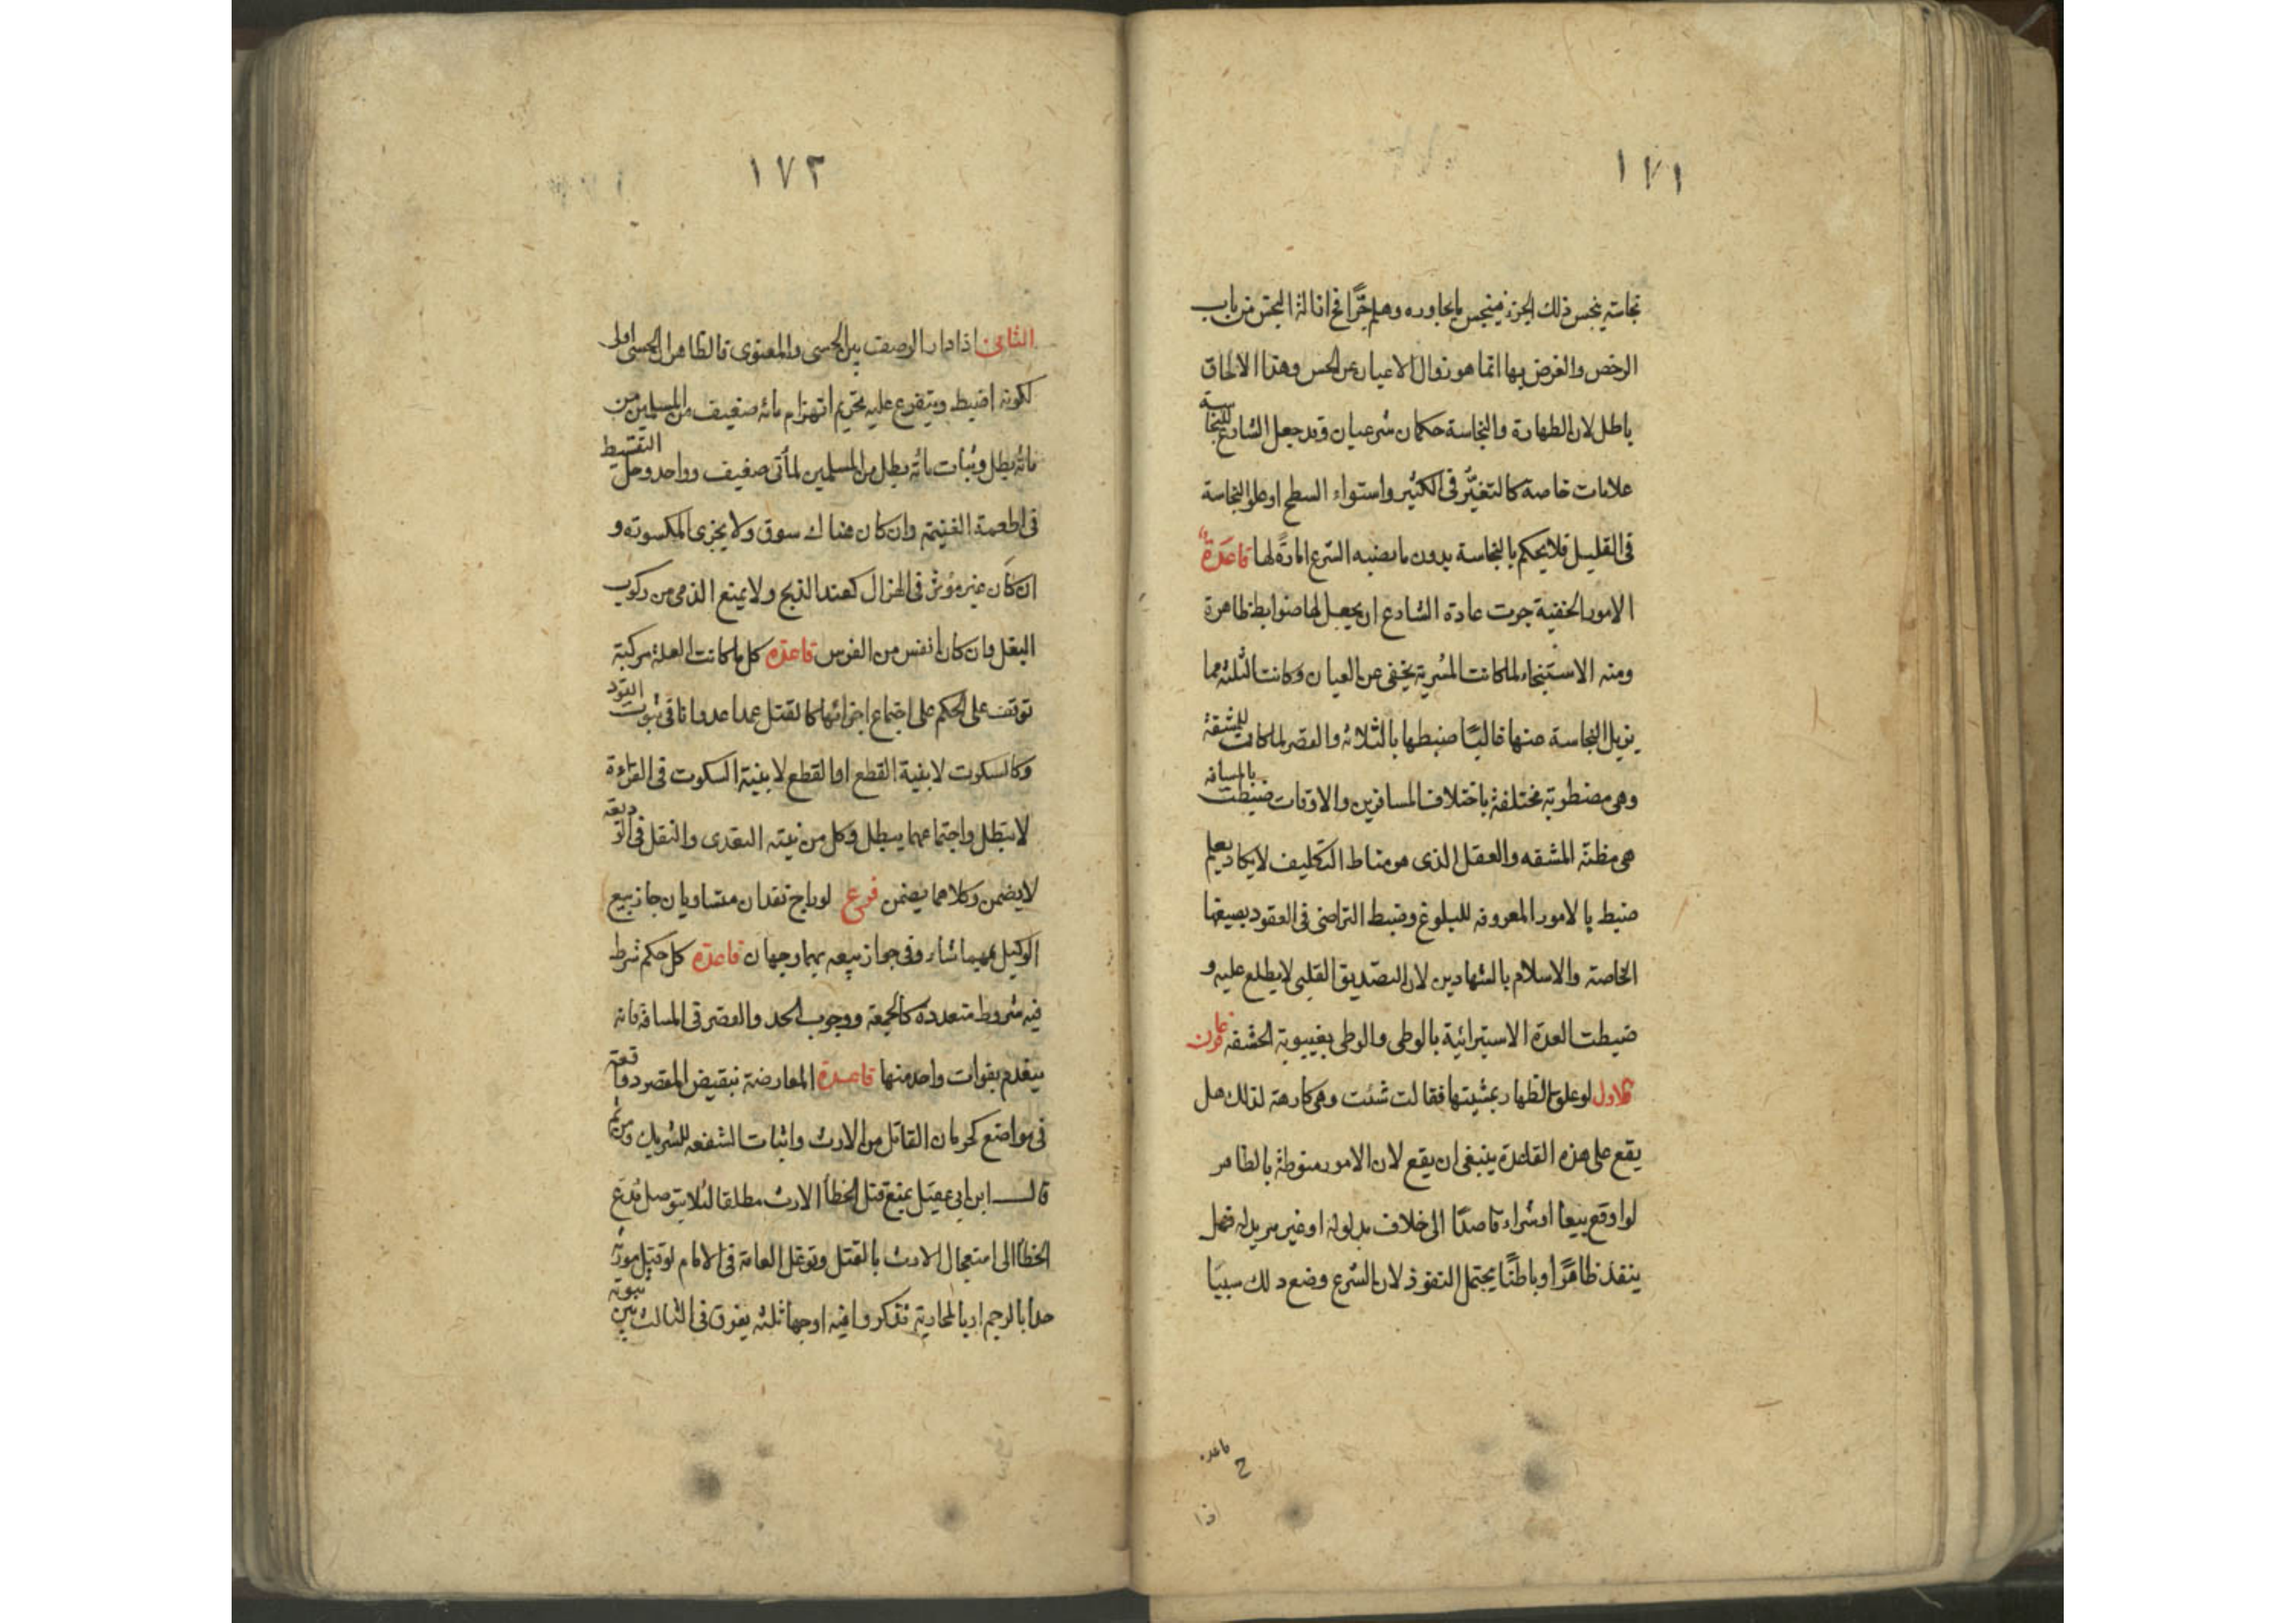 ١٧١
نجاسته ينجس ذلك الجزء فينجس ما يجاوره وهلم جرًّا فح ازالة النجس من باب
الرخص والغرض بها انما هو زوال الاعيان عن الحس وهذا الالحاق
باطل لان الطهارة والنجاسة حكمان شرعيان وقد جعل الشارع للنجاسة
علامات خاصة كالتغيّر فى الكثير واستواء السطح او علو النجاسة
فى القليل فلا يحكم بالنجاسة بدون ما نصبه الشرع امارةً لها قاعدة
الامور الخفية جرت عادة الشارع ان يجعل لها ضوابط ظاهرة
ومنه الاستنجاء لما كانت المسربة يخفى عن العيان وكانت الثلثة مما
يزيل النجاسة عنها غالبًا ضبطها بالثلاثة والقصر لما كانت للمشقة
وهى مضطربة مختلفة باختلاف المسافرين والاوقات ضبطت بالمسافة
هى مظنة المشقه والعقل الذى هو مناط التكليف لا يكاد يعلم
ضبط بالامور المعروفه للبلوغ وضبط التراضى فى العقود بصيغها
الخاصة والاسلام بالشهادتين لان التصديق القلبى لا يطلع عليه و
ضبطت العدة الاستبرائية بالوطى والوطى بغيبوبة الحشفة فرعان
الاول لو علق الظهار بمشيتها فقالت شئت وهى كارهة لذلك هل
يقع على هذه القاعدة ينبغى ان يقع لان الامور منوطة بالظاهر
لو اوقع بيعا او شراء قاصدًا الى خلاف مدلوله او غير مريد له فهل
ينفذ ظاهرًا وباطنًا يحتمل النفوذ لان الشرع وضع ذلك سببا
قاعده
١٧٢
الثانى اذا دار الوصف بين الحسى والمعنوى فالظاهر ان الحسى اولى
لكونه اضبط ويتفرع عليه تحريم انهزام مائه ضعيف من المسلمين من
مائه بطل وثبات مائه بطل من المسلمين لمأتى ضعيف وواحد وحل التقسيط
فى اطعمة الغنيمة وان كان هناك سوق ولا يجزى المكسوته و
ان كان غير مؤثر فى الهزال كعند الذبح ولا يمنع الذمى من ركوب
البغل وان كان انفس من الفرس قاعده كل ما كانت العلة مركبة
توقف على الحكم على اجتماع اجزائها كالقتل عمدا عدوانا فى ثبوت القود
وكالسكوت لا بنية القطع او القطع لا بنية السكوت فى القراءة
لا تبطل واجتماعهما يبطل وكل من نية التعدى والنقل فى الوديعة
لا يضمن وكلاهما يضمن فرع لو راج نقدان متساويان جاز بيع
الوكيل بايهما شاء وفى جواز بيعه بهما وجهان قاعدة كل حكم شرط
فيه شروط متعدده كالجمعة ووجوب الحد والقصر فى المسافة فانه
ينعدم بفوات واحد منها قاعدة المعارضة بنقيض المقصود واقعة
فى مواضع كحرمان القاتل من الارث واثبات الشفعه للشريك ومن ثم
قال ابن ابى عقيل بمنع قتل الخطأ الارث مطلقا لئلا يتوصل مدع
الخطأ الى استعجال الارث بالقتل وتوغل العامة فى الامام لو قتل مورثه
حدا بالرجم او بالمحاربة فذكروا فيه اوجها ثلثه يفرق فى الثالث بين ثبوته